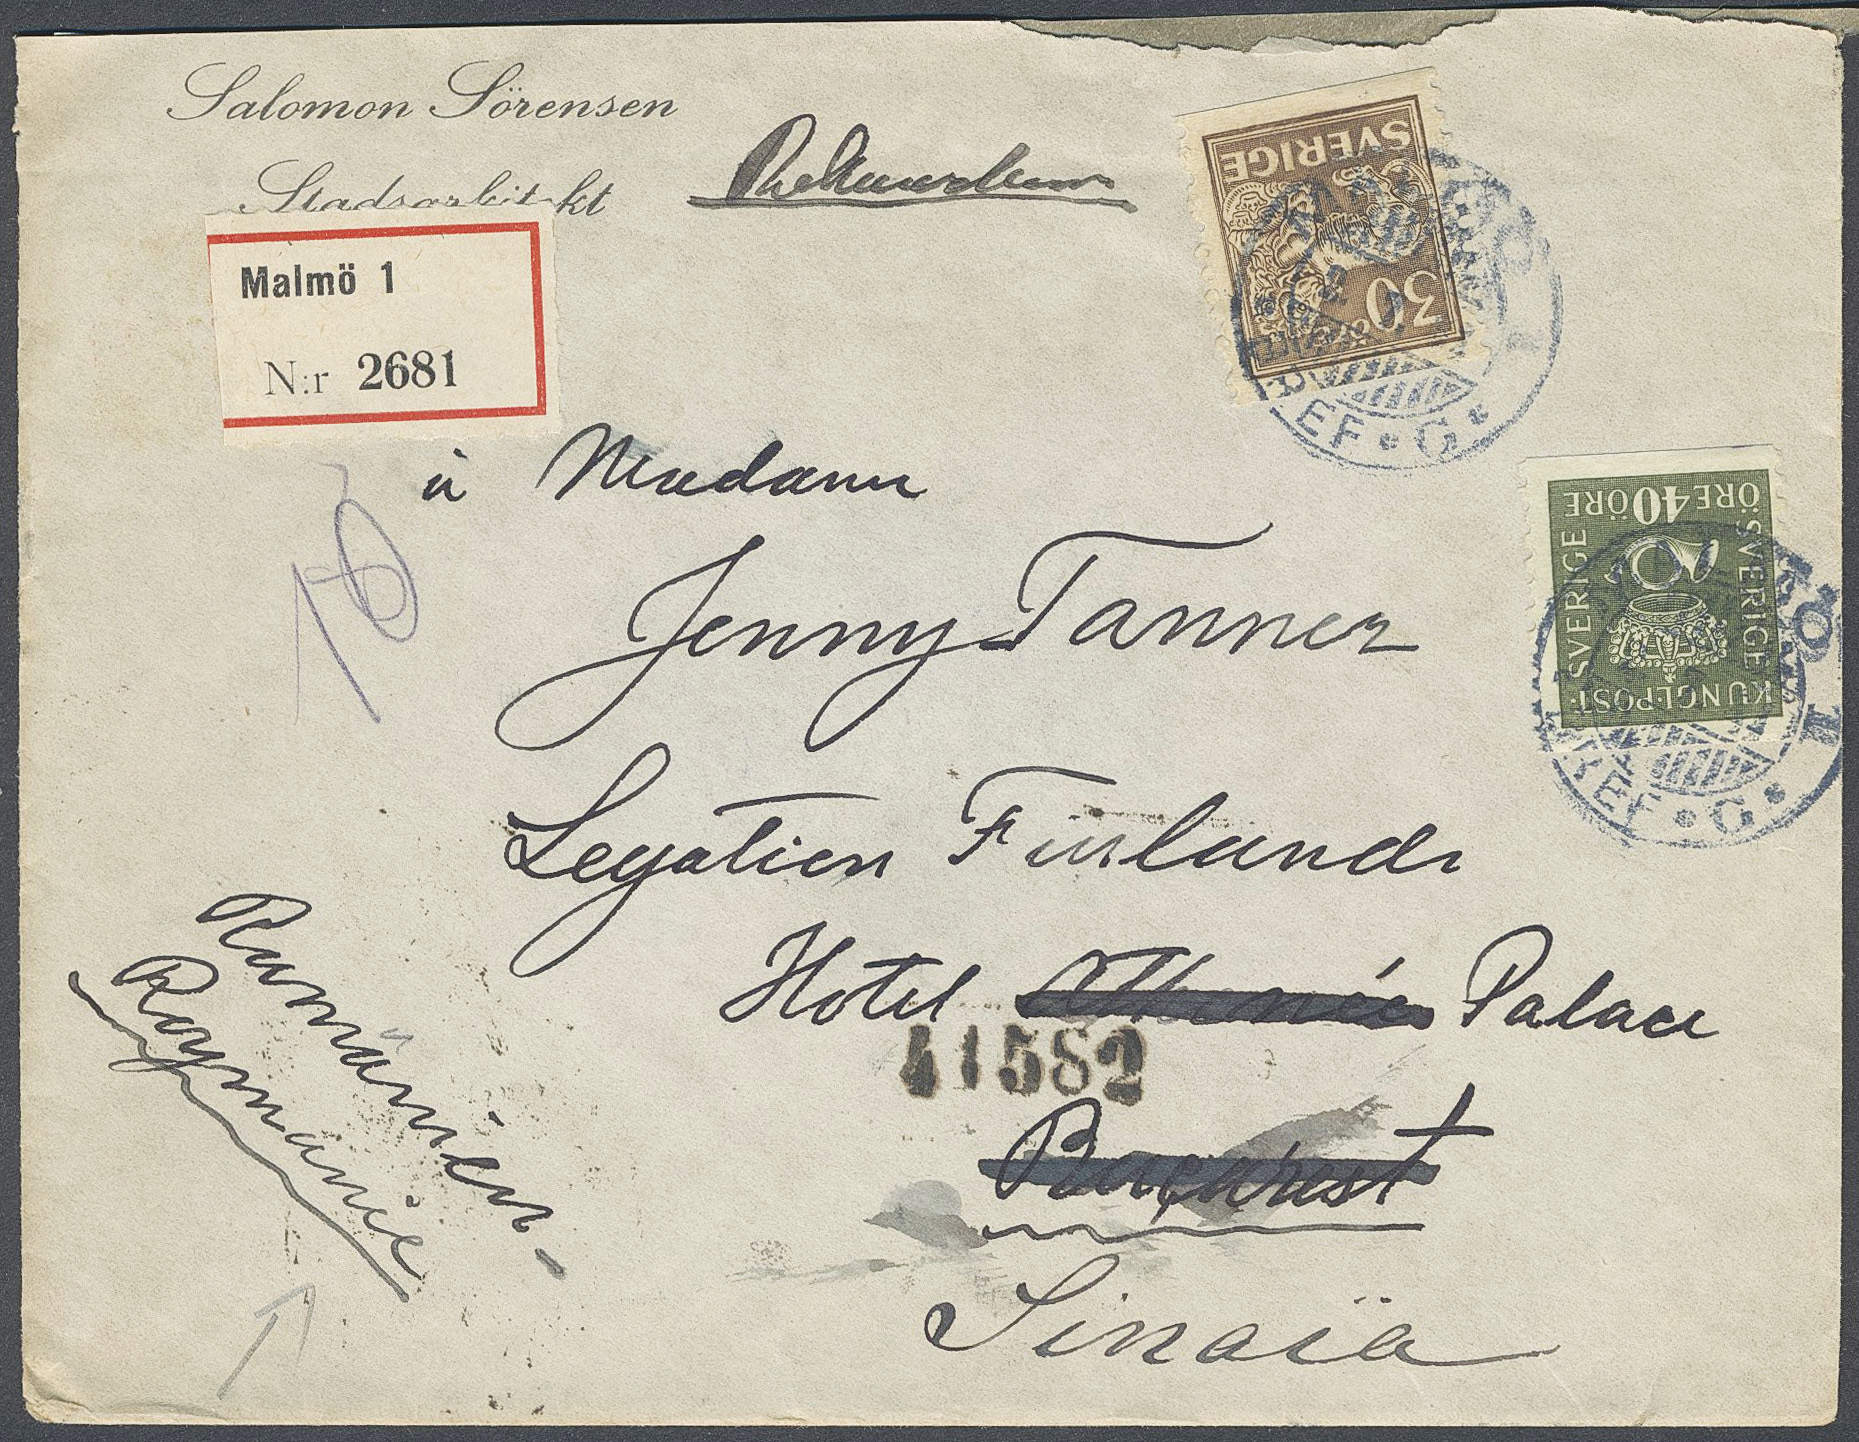 Salomon Sörensen
Stadsarkitekt
Malmö 1
N:r 2681
SVERIGE
30
ÖRE 40 ÖRE
SVERIGE
SVERIGE
KUNGL·POST·
BREF • G •
BREF • G •
à Madame
Jenny Tanner
Legation Finland
Hotel Athenée Palace
41582
Bucarest
Sinaïa
Rumänien
Roumanie